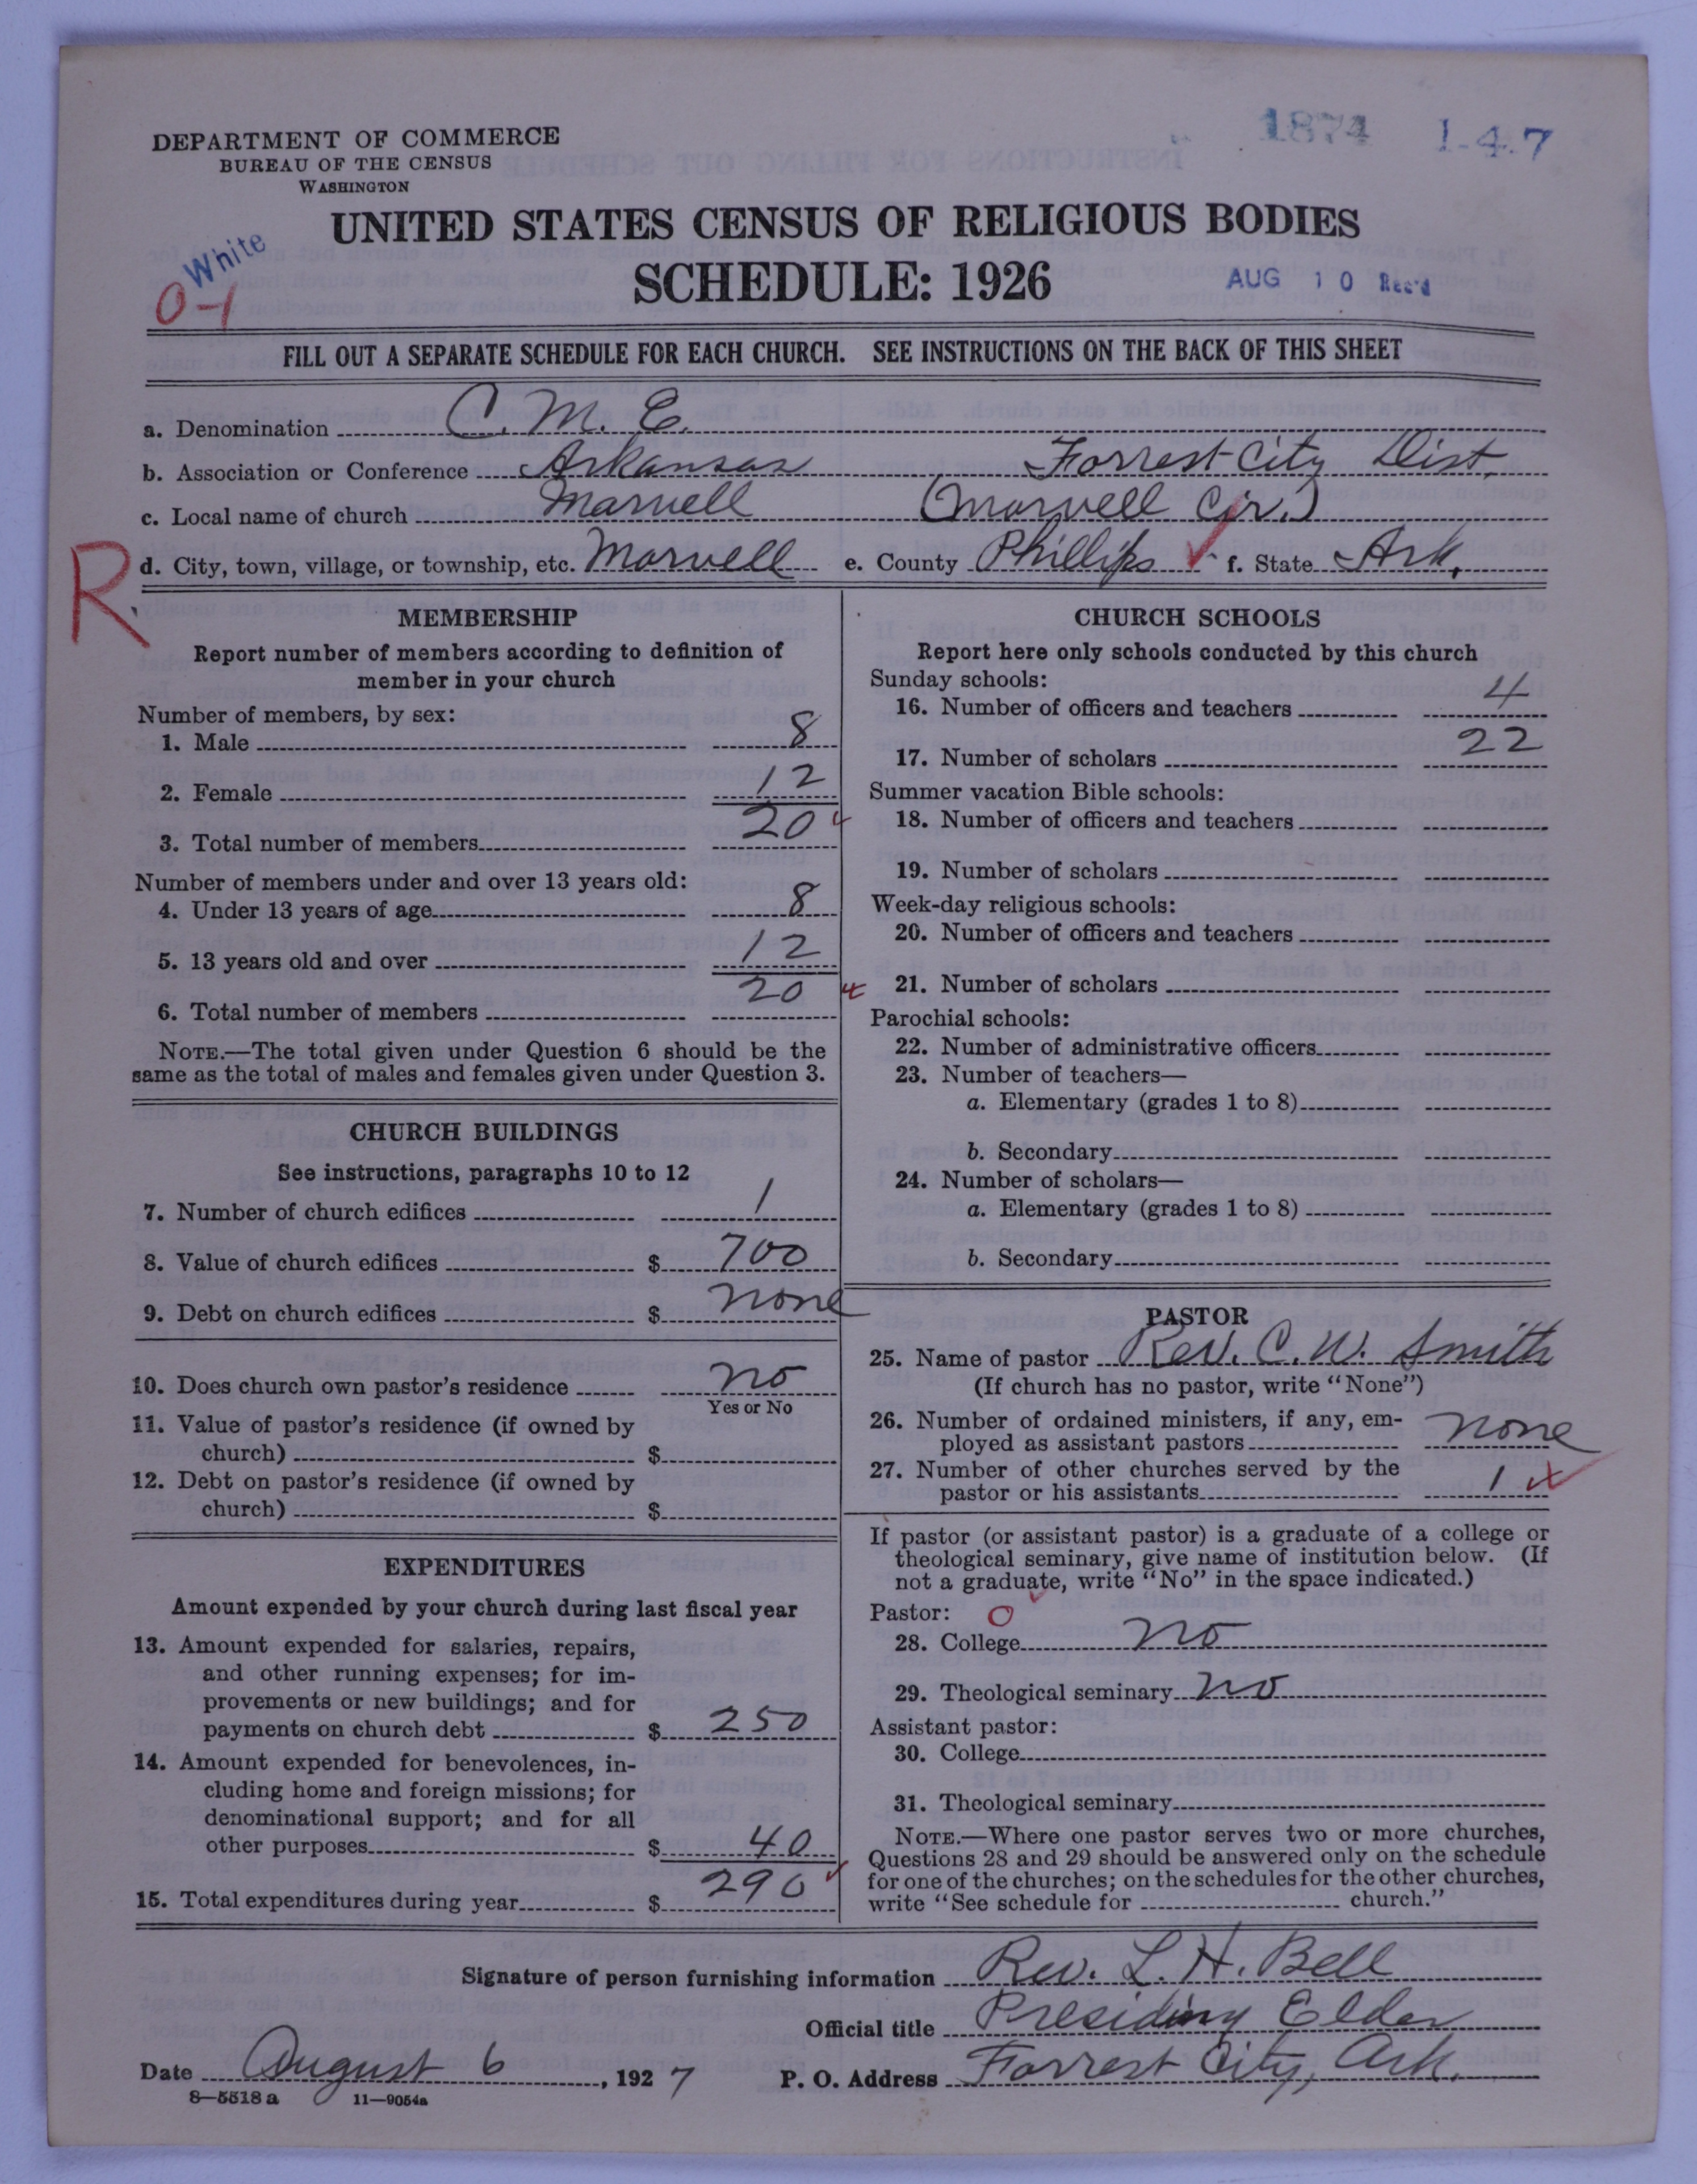 1874 1-4-7
DEPARTMENT OF COMMERCE
BUREAU OF THE CENSUS
WASHINGTON
UNITED STATES CENSUS OF RELIGIOUS BODIES
SCHEDULE: 1926
White
0-1
AUG 10 Rec'd
FILL OUT A SEPARATE SCHEDULE FOR EACH CHURCH. SEE INSTRUCTIONS ON THE BACK OF THIS SHEET
a. Denomination C. M. E.
b. Association or Conference Arkansas Forrest City Dist.
c. Local name of church Marvell (Marvell Cir.)
R
d. City, town, village, or township, etc. Marvell e. County Phillips f. State Ark.
MEMBERSHIP
Report number of members according to definition of
member in your church
Number of members, by sex:
1. Male 8
2. Female 12
3. Total number of members 20
Number of members under and over 13 years old:
4. Under 13 years of age 8
5. 13 years old and over 12
6. Total number of members 20
NOTE.—The total given under Question 6 should be the
same as the total of males and females given under Question 3.
CHURCH BUILDINGS
See instructions, paragraphs 10 to 12
7. Number of church edifices 1
8. Value of church edifices $ 700
9. Debt on church edifices $ none
10. Does church own pastor's residence no
Yes or No
11. Value of pastor's residence (if owned by
church) $
12. Debt on pastor's residence (if owned by
church) $
EXPENDITURES
Amount expended by your church during last fiscal year
13. Amount expended for salaries, repairs,
and other running expenses; for im-
provements or new buildings; and for
payments on church debt $ 250
14. Amount expended for benevolences, in-
cluding home and foreign missions; for
denominational support; and for all
other purposes $ 40
15. Total expenditures during year $ 290
CHURCH SCHOOLS
Report here only schools conducted by this church
Sunday schools:
16. Number of officers and teachers 4
17. Number of scholars 22
Summer vacation Bible schools:
18. Number of officers and teachers
19. Number of scholars
Week-day religious schools:
20. Number of officers and teachers
21. Number of scholars
Parochial schools:
22. Number of administrative officers
23. Number of teachers—
a. Elementary (grades 1 to 8)
b. Secondary
24. Number of scholars—
a. Elementary (grades 1 to 8)
b. Secondary
PASTOR
25. Name of pastor Rev. C. W. Smith
(If church has no pastor, write "None")
26. Number of ordained ministers, if any, em-
ployed as assistant pastors none
27. Number of other churches served by the
pastor or his assistants 1
If pastor (or assistant pastor) is a graduate of a college or
theological seminary, give name of institution below. (If
not a graduate, write "No" in the space indicated.)
Pastor: 0
28. College no
29. Theological seminary no
Assistant pastor:
30. College
31. Theological seminary
NOTE.—Where one pastor serves two or more churches,
Questions 28 and 29 should be answered only on the schedule
for one of the churches; on the schedules for the other churches,
write "See schedule for church."
Signature of person furnishing information Rev. L. H. Bell
Official title Presiding Elder
Date August 6, 1927 P. O. Address Forrest City, Ark.
8—5518 a 11—9054a